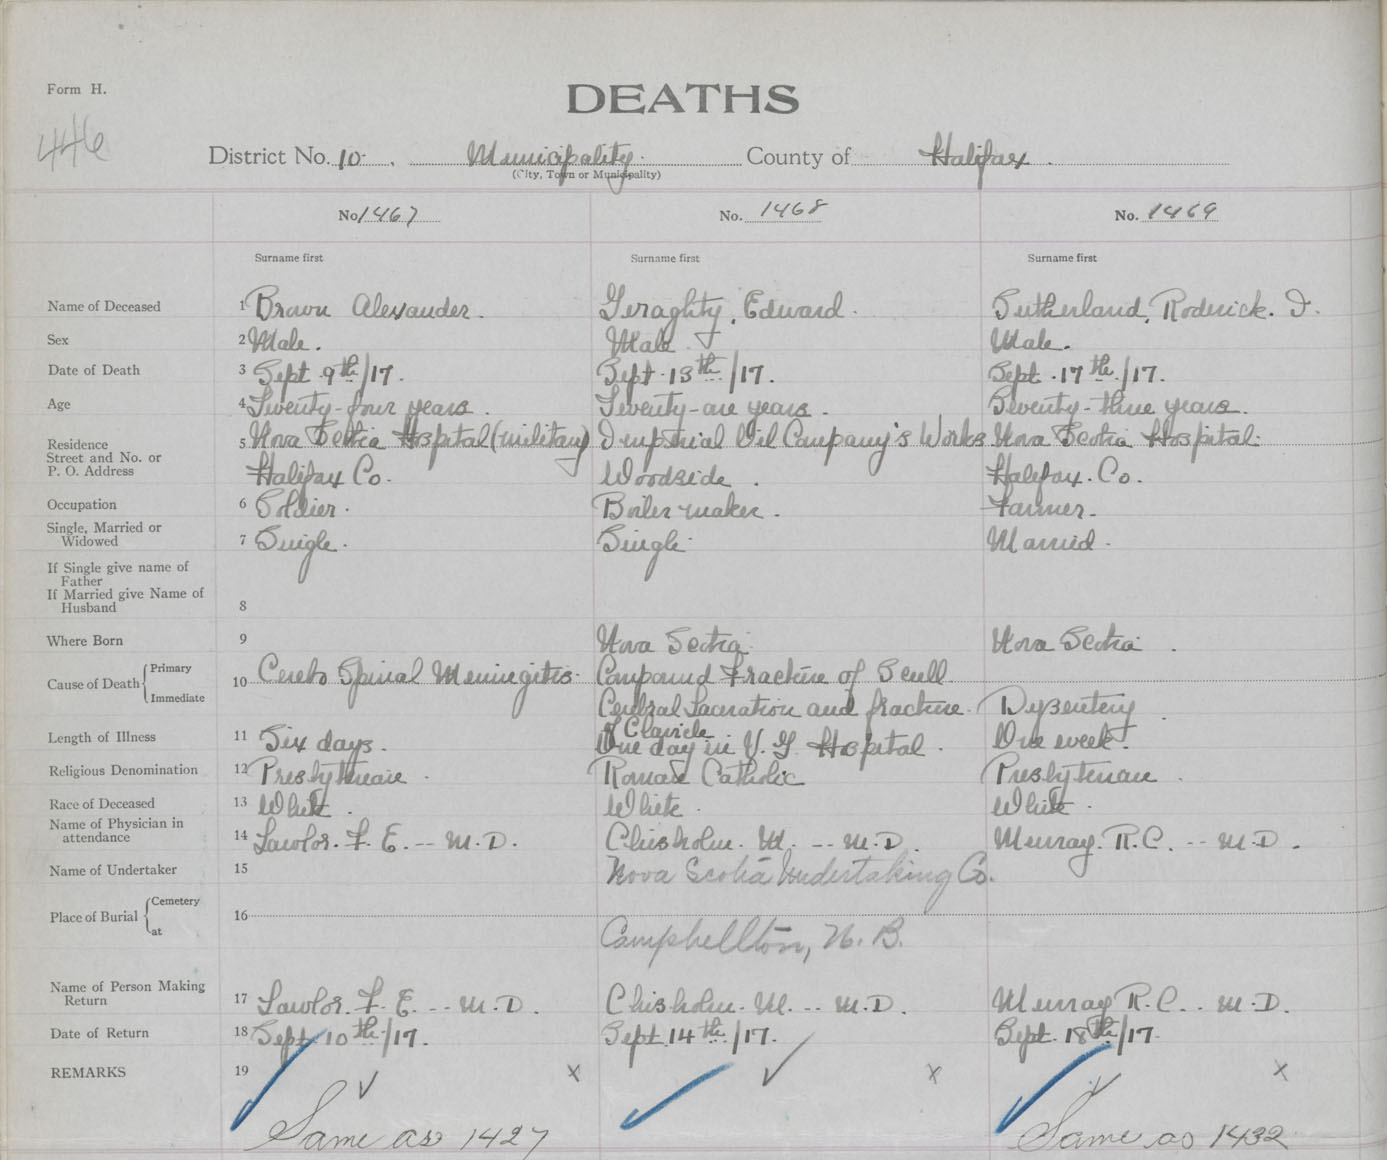 Form H.
DEATHS
446
District No. 10 . Municipality County of Halifax .
(City, Town or Municipality)
No. 1467 No. 1468 No. 1469
Surname first Surname first Surname first
Name of Deceased 1 Brown Alexander. Geraghty, Edward. Sutherland, Roderick. I.
Sex 2 Male. Male. Male.
Date of Death 3 Sept 9th/17. Sept. 13th/17. Sept. 17th/17.
Age 4 Twenty-four years. Twenty-one years. Seventy-three years.
Residence 5 Nova Scotia Hospital (military) Imperial Oil Company's Works Nova Scotia Hospital.
Street and No. or
P. O. Address Halifax Co. Woodside. Halifax. Co.
Occupation 6 Soldier. Boiler maker. Farmer.
Single, Married or
Widowed 7 Single. Single Married.
If Single give name of
Father
If Married give Name of
Husband 8
Where Born 9 Nova Scotia Nova Scotia.
Cause of Death { Primary 10 Cerebo Spinal Meningitis. Compound Fracture of Scull
Immediate Cerebral Laceration and fracture Dysentery.
of Clavicle.
Length of Illness 11 Six days. One day in V. G. Hospital. One week.
Religious Denomination 12 Presbyterian. Roman Catholic Presbyterian.
Race of Deceased 13 White. White. White.
Name of Physician in
attendance 14 Lawlor. F. E. -- M.D. Chisholm. M. -- M.D. Murray. R.C. -- M.D.
Name of Undertaker 15 Nova Scotia Undertaking Co.
Place of Burial { Cemetery 16
at Campbellton, N. B.
Name of Person Making
Return 17 Lawlor. F. E. -- M.D. Chisholm. M. -- M.D. Murray R.C. -- M.D.
Date of Return 18 Sept 10th/17. Sept. 14th/17. Sept. 18th/17.
REMARKS 19 x x x
Same as 1427 Same as 1432